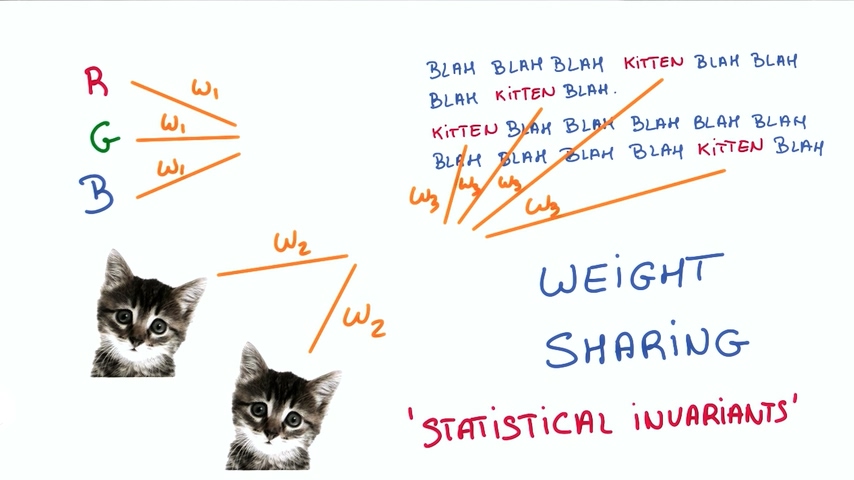 R W1
G W1
B W1
BLAH BLAH BLAH KITTEN BLAH BLAH
BLAH KITTEN BLAH.
KITTEN BLAH BLAH BLAH BLAH BLAH
BLAH BLAH BLAH BLAH KITTEN BLAH
W3 W3 W3 W3
W2
W2
WEIGHT
SHARING
'STATISTICAL INVARIANTS'